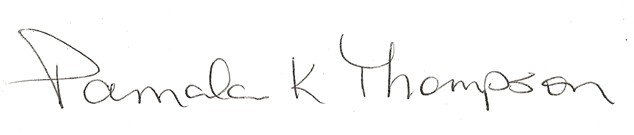 Pamala K Thompson